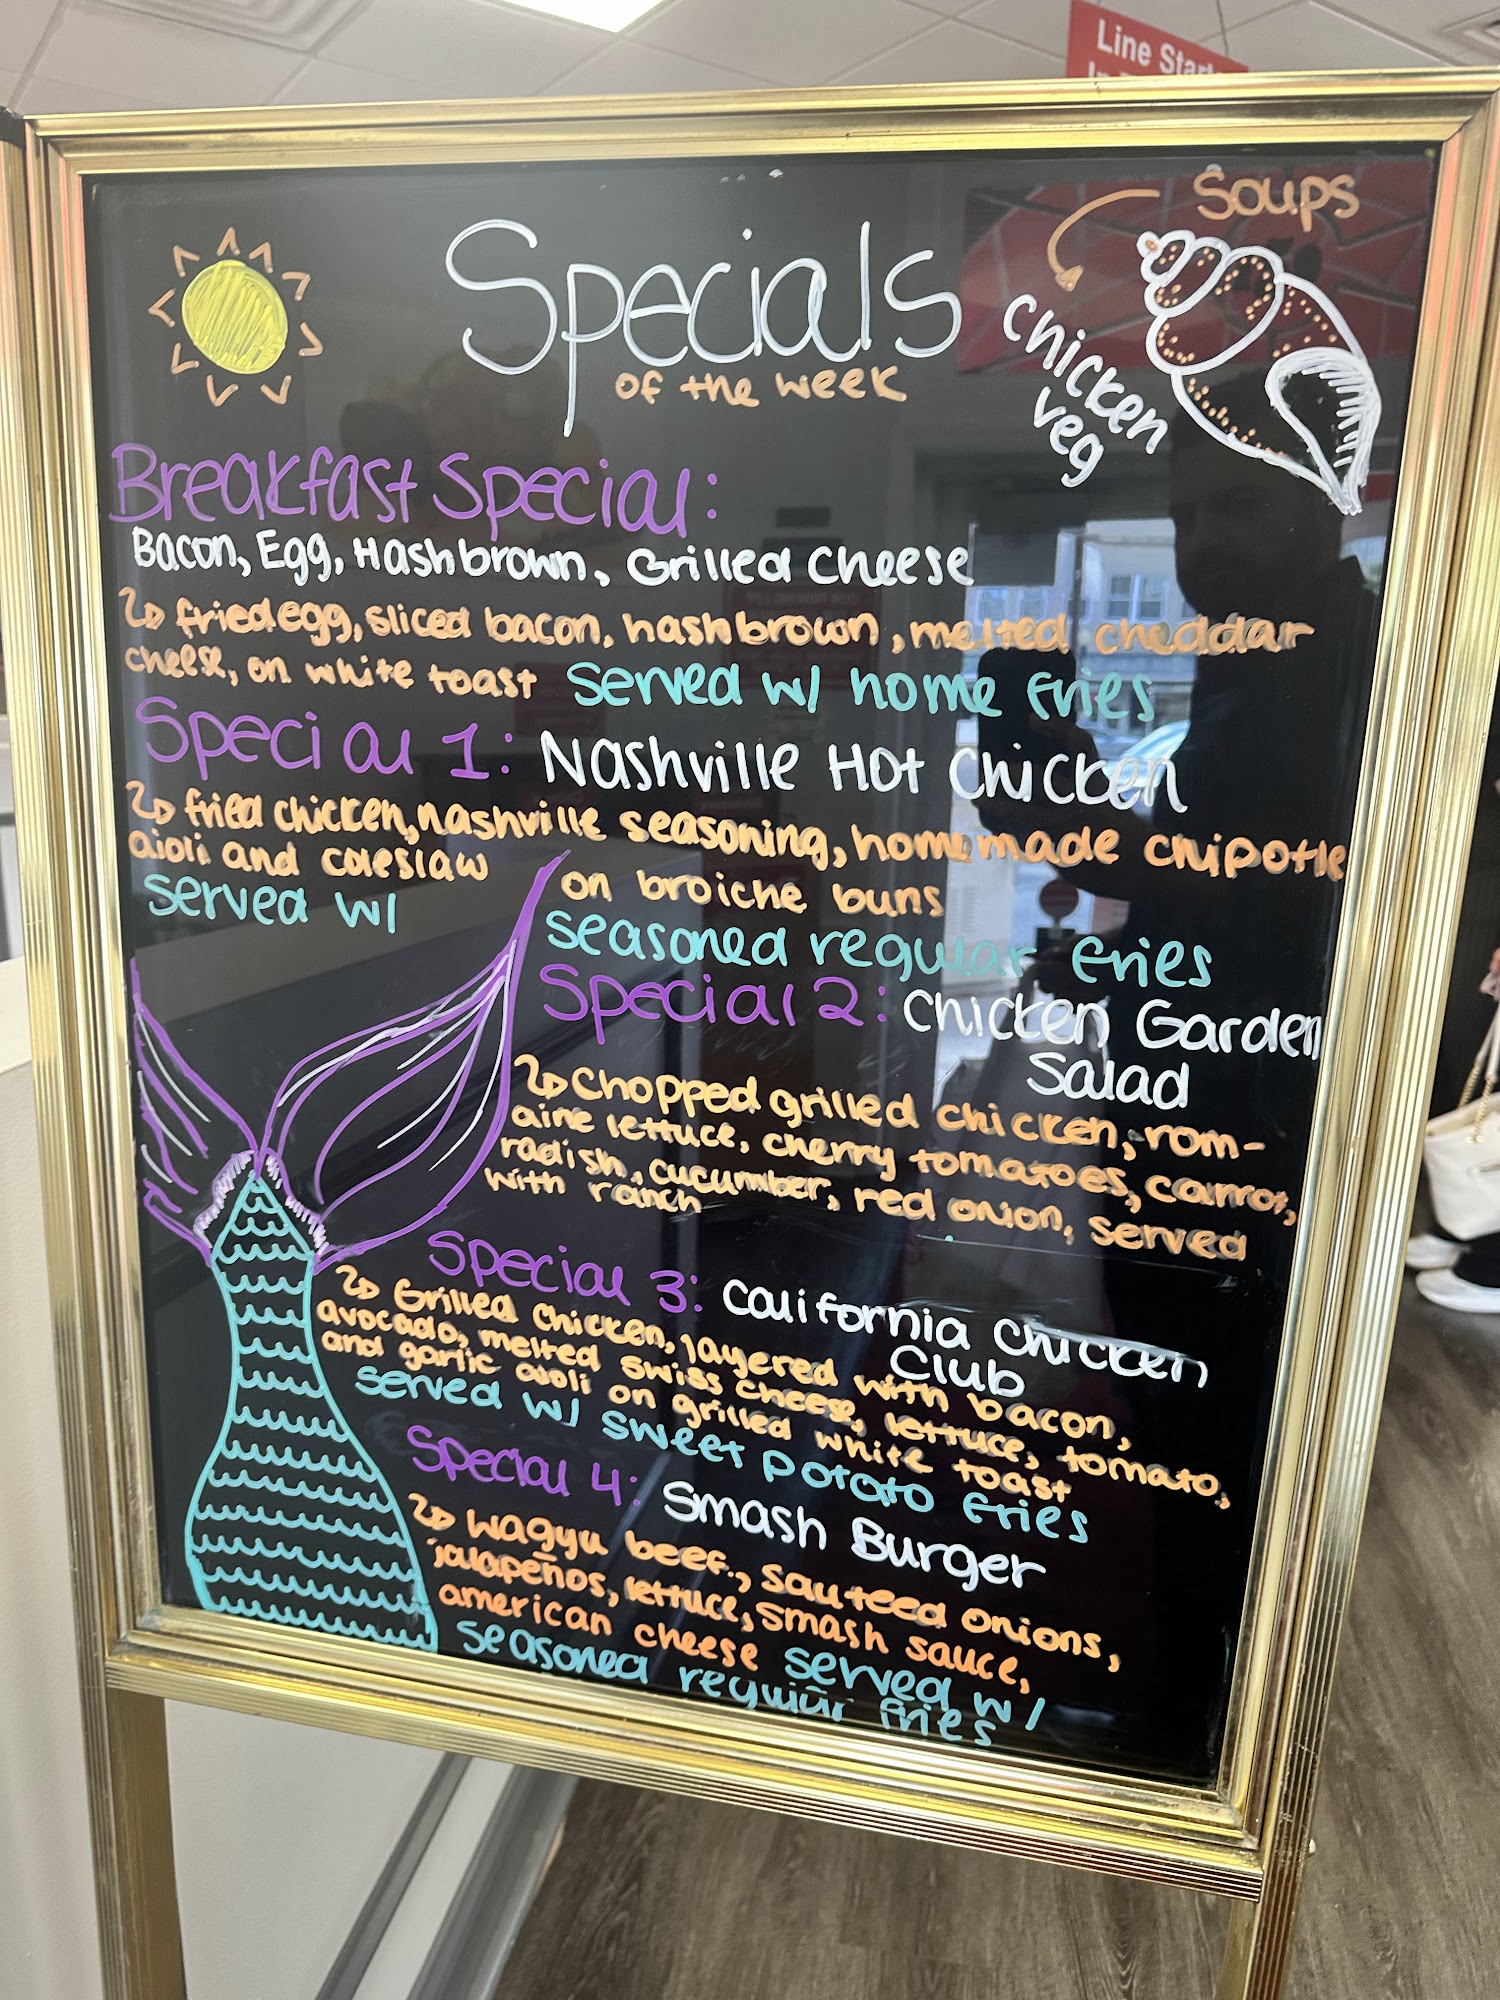 Line Start
Soups
Specials
of the week
chicken
veg
Breakfast Special:
Bacon, Egg, Hashbrown, Grilled Cheese
fried egg, sliced bacon, hashbrown, melted cheddar
cheese, on white toast served w/ home fries
Special 1: Nashville Hot Chicken
fried chicken, nashville seasoning, homemade chipotle
aioli and coleslaw on broiche buns
served w/ seasoned regular fries
Special 2: Chicken Garden
Salad
Chopped grilled chicken, rom-
aine lettuce, cherry tomatoes, carrot,
radish, cucumber, red onion, served
with ranch
Special 3: California Chicken
Club
Grilled chicken, layered with bacon,
avocado, melted swiss cheese, lettuce, tomato,
and garlic aioli on grilled white toast
served w/ sweet potato fries
Special 4: Smash Burger
wagyu beef, sauteed onions,
jalapeños, lettuce, smash sauce,
american cheese served w/
seasoned regular fries